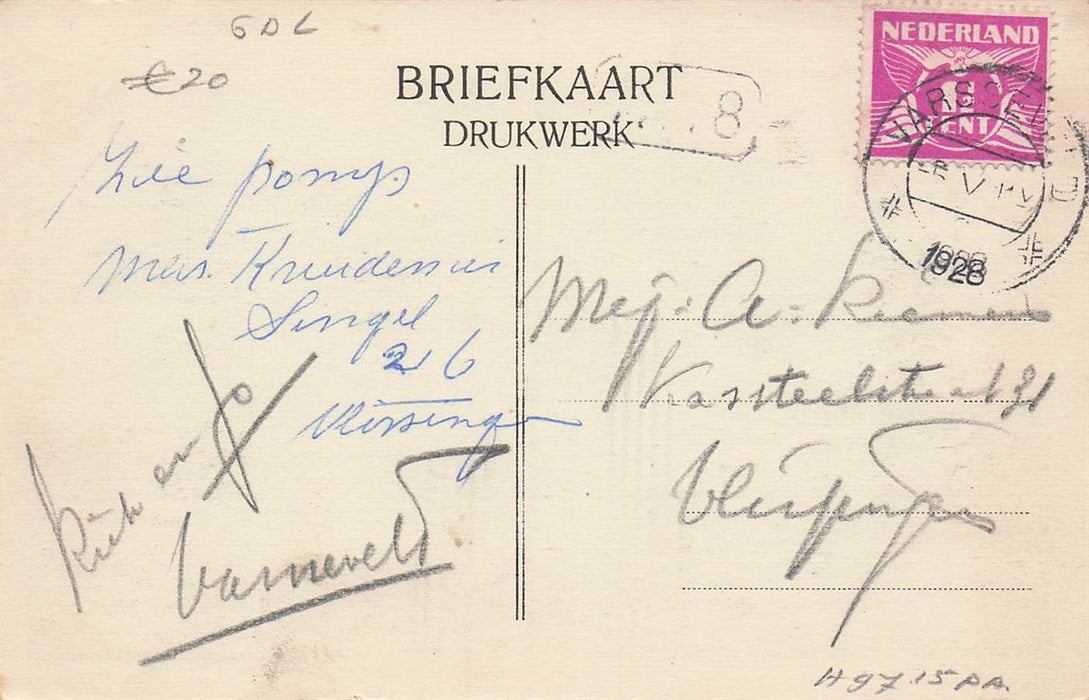 GDL
€20
BRIEFKAART
DRUKWERK
8
NEDERLAND
CENT
VARSSEVELD
1928
Zie pomp
Mevr.
Singel
216
Vlissingen
en Jo
Varseveld
Mej. A.
Kasteelstraat 31
Vlissingen
H 97 15 AA